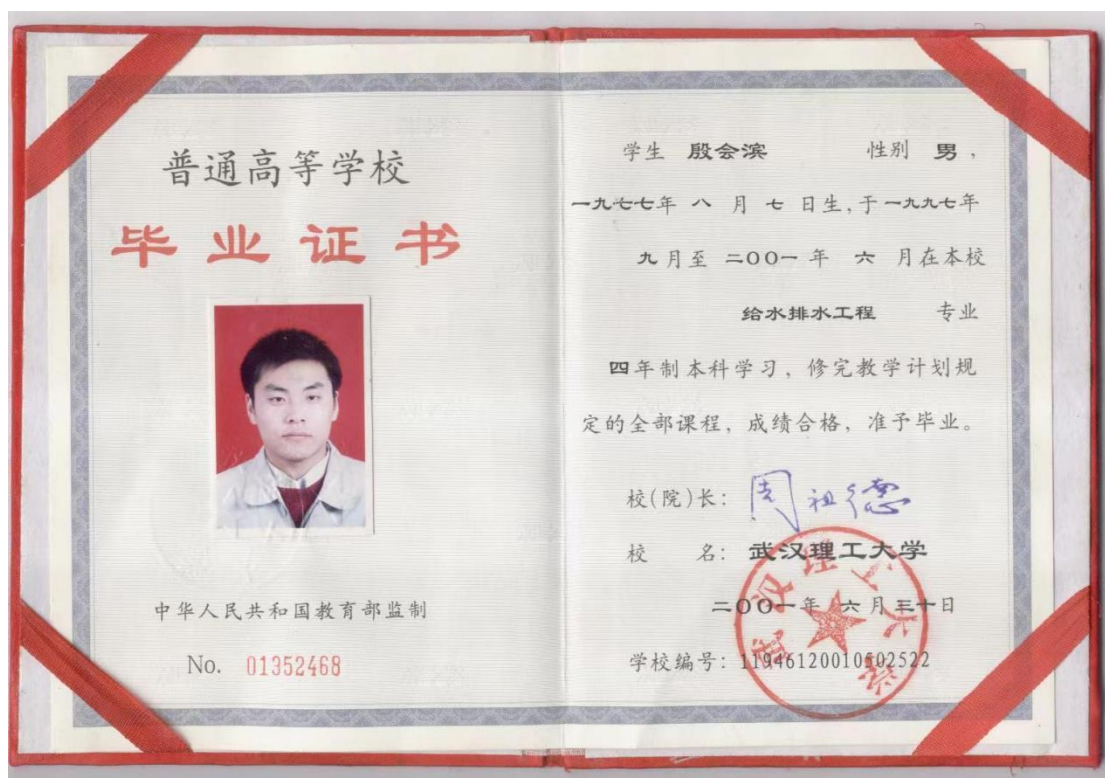 普通高等学校
毕业证书
中华人民共和国教育部监制
No. 01352468
学生 殷会滨 性别 男，
一九七七年 八 月 七 日生,于一九九七年
九月至 二〇〇一 年 六 月在本校
给水排水工程 专业
四年制本科学习，修完教学计划规
定的全部课程，成绩合格，准予毕业。
校(院)长: 周祖德
校 名: 武汉理工大学
二〇〇一年 六 月三十日
学校编号: 11946120010502522
武汉理工大学